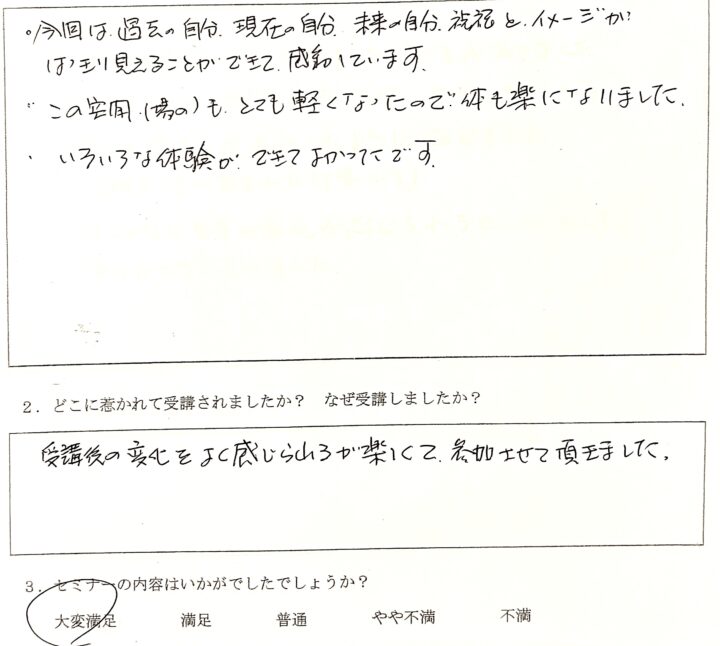 ○今回は、過去の自分、現在の自分、未来の自分、祝福と、イメージが
はっきり見えることができて、感動しています。
・この空間(場の)も、とても軽くなったので、体も楽になりました。
・いろいろな体験ができてよかったです。
2．どこに惹かれて受講されましたか？　なぜ受講しましたか？
受講後の変化をよく感じられるが楽しくて、参加させて頂きました。
3．セミナーの内容はいかがでしたでしょうか？
大変満足　満足　普通　やや不満　不満